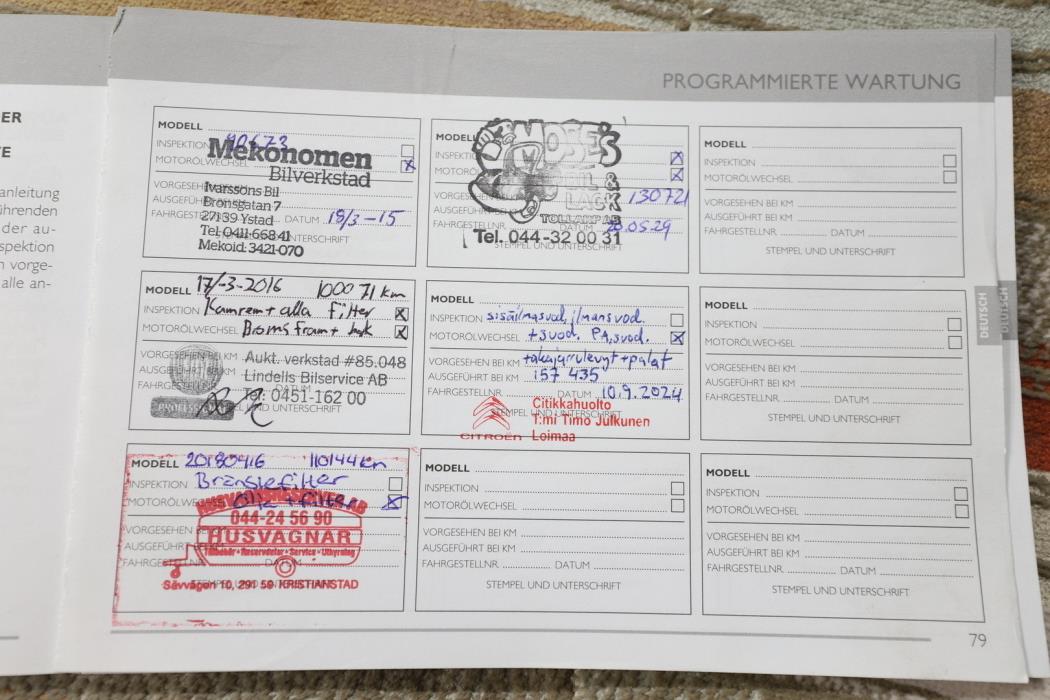 ER
E
anleitung
ührenden
der au-
spektion
n vorge-
alle an-
PROGRAMMIERTE WARTUNG
MODELL
INSPEKTION 90673
MOTORÖLWECHSEL
Mekonomen
Bilverkstad
Ivarssons Bil
Bronsgatan 7
27139 Ystad
Tel: 0411-668 41
Mekoid: 3421-070
DATUM 18/3-15
MODELL
MOSE'S
BIL &
LACK
TOLLARP AB
130721
DATUM 20.05.29
Tel. 044-32 00 31
STEMPEL UND UNTERSCHRIFT
MODELL
INSPEKTION
MOTORÖLWECHSEL
VORGESEHEN BEI KM
AUSGEFÜHRT BEI KM
FAHRGESTELLNR. DATUM
STEMPEL UND UNTERSCHRIFT
MODELL 17/-3-2016 100071 km
INSPEKTION Kamrem + alla filter
MOTORÖLWECHSEL Broms fram + bak
VORGESEHEN BEI KM
AUSGEFÜHRT BEI KM
FAHRGESTELLNR. DATUM
Aukt. verkstad #85.048
Lindells Bilservice AB
Tel: 0451-162 00
MODELL
INSPEKTION sisäilmasuod, ilmansuod.
MOTORÖLWECHSEL +suod. PA,suod.
VORGESEHEN BEI KM +takajarrulevyt+palat
AUSGEFÜHRT BEI KM 157 435
FAHRGESTELLNR. DATUM 10.9.2024
STEMPEL UND UNTERSCHRIFT
CITROËN
Citikkahuolto
T:mi Timo Julkunen
Loimaa
MODELL
INSPEKTION
MOTORÖLWECHSEL
VORGESEHEN BEI KM
AUSGEFÜHRT BEI KM
FAHRGESTELLNR. DATUM
STEMPEL UND UNTERSCHRIFT
DEUTSCH
DEUTSCH
MODELL 20180416 110144 km
INSPEKTION Bränslefilter
MOTORÖLWECHSEL Olja + filter
VORGESEHEN BEI KM
AUSGEFÜHRT BEI KM
044-24 56 90
HUSVAGNAR
Tillbehör • Reservdelar • Service • Uthyrning
Sävvägen 10, 291 59 KRISTIANSTAD
MODELL
INSPEKTION
MOTORÖLWECHSEL
VORGESEHEN BEI KM
AUSGEFÜHRT BEI KM
FAHRGESTELLNR. DATUM
STEMPEL UND UNTERSCHRIFT
MODELL
INSPEKTION
MOTORÖLWECHSEL
VORGESEHEN BEI KM
AUSGEFÜHRT BEI KM
FAHRGESTELLNR. DATUM
STEMPEL UND UNTERSCHRIFT
79